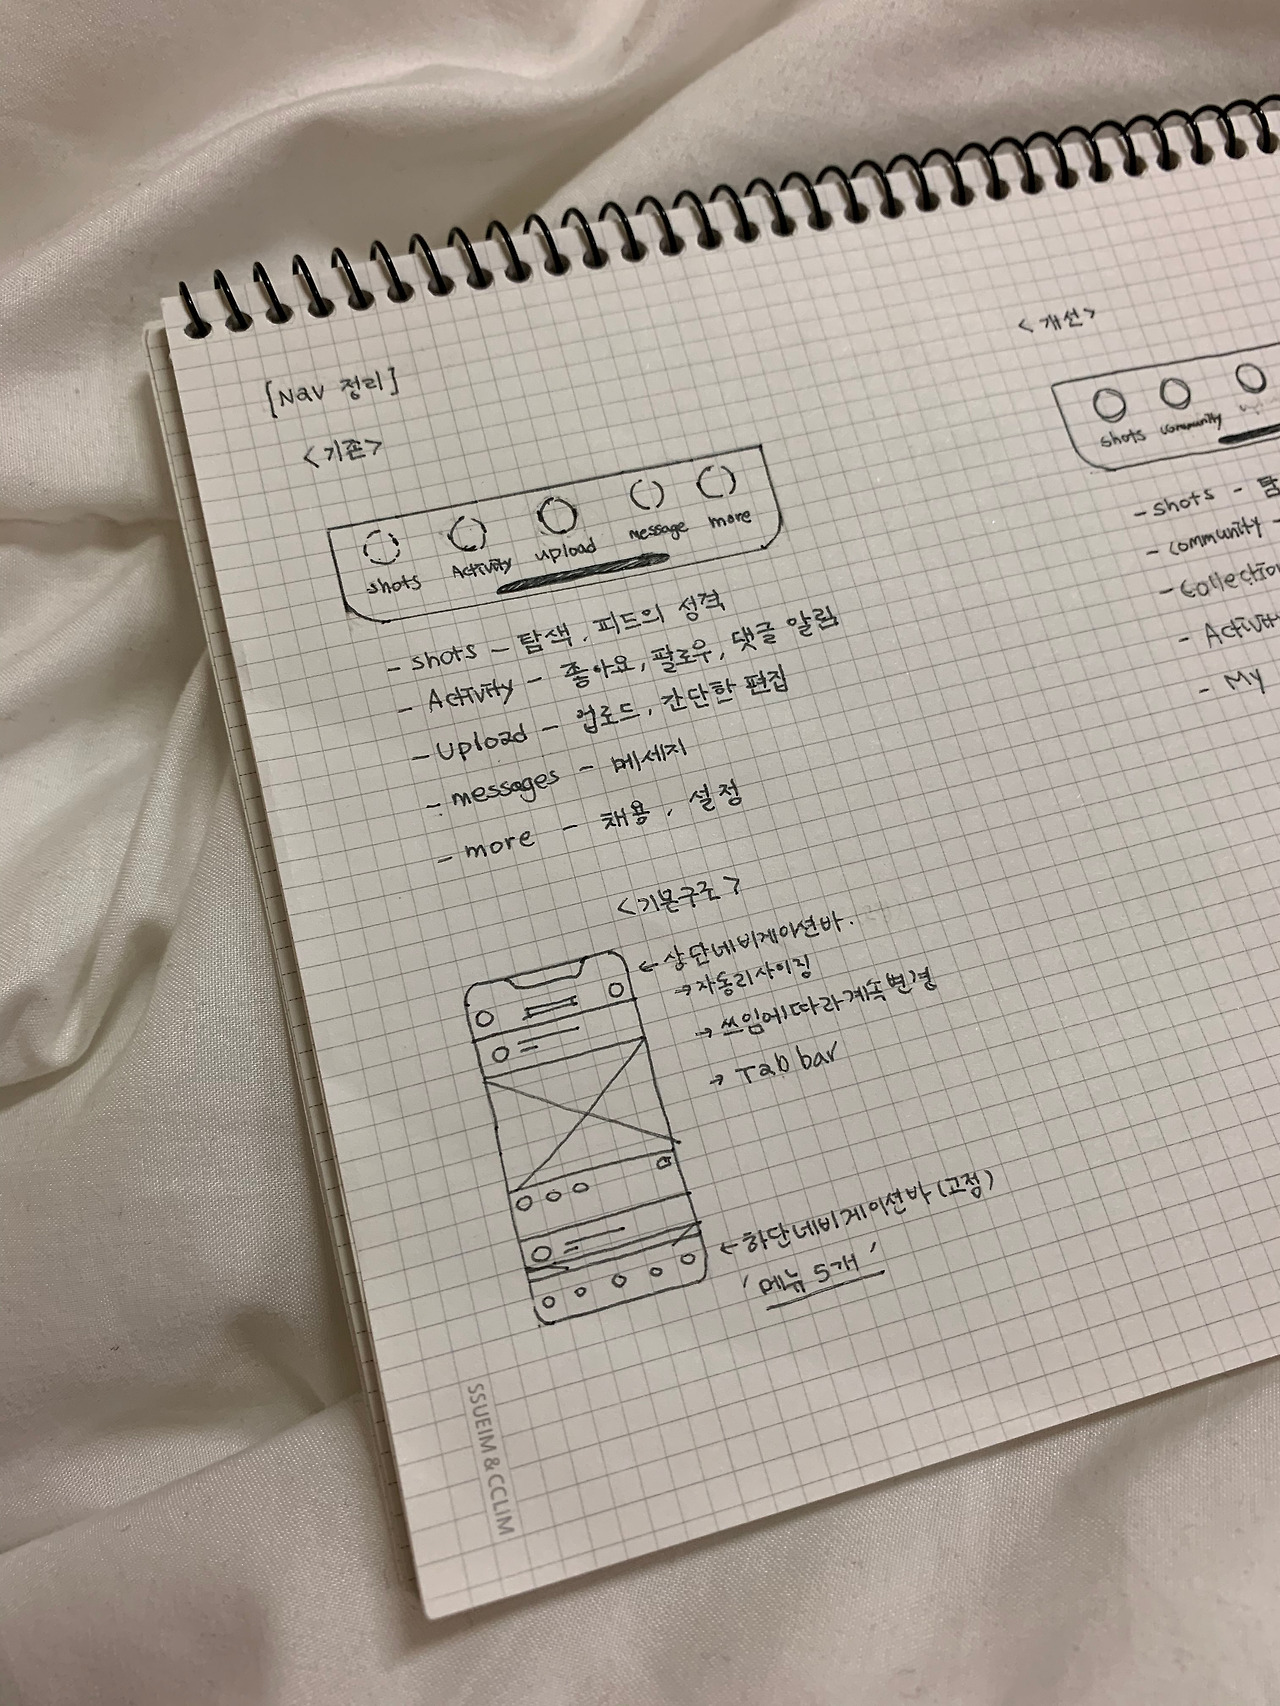 [Nav 정리]
<기존>
shots Activity upload message more
- shots - 탐색, 피드의 성격
- Activity - 좋아요, 팔로우, 댓글 알림
- upload - 업로드, 간단한 편집
- messages - 메세지
- more - 채용, 설정
<기본구조>
← 상단네비게이션바.
→ 자동리사이징
→ 쓰임에따라계속변경
→ Tab bar
← 하단네비게이션바(고정)
'메뉴 5개'
<개선>
shots community
- shots - 탐
- community -
- Collection
- Activity
- My
SSUEIM & CCLIM